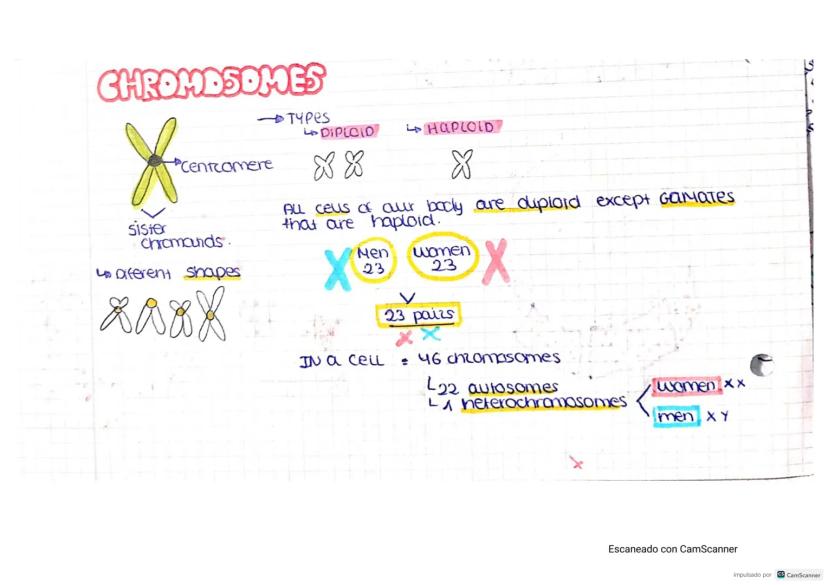 CHROMOSOMES
→ TYPES
↳ DIPLOID
↳ HAPLOID
→ centromere
sister
chromands.
↳ Diferent shapes
All cells of our body are diploid except GAMATES
that are haploid.
Men
23
Women
23
23 pairs
IN a cell = 46 chromosomes
↳ 22 autosomes
↳ 1 heterochromosomes
women XX
men XY
Escaneado con CamScanner
Impulsado por CS CamScanner